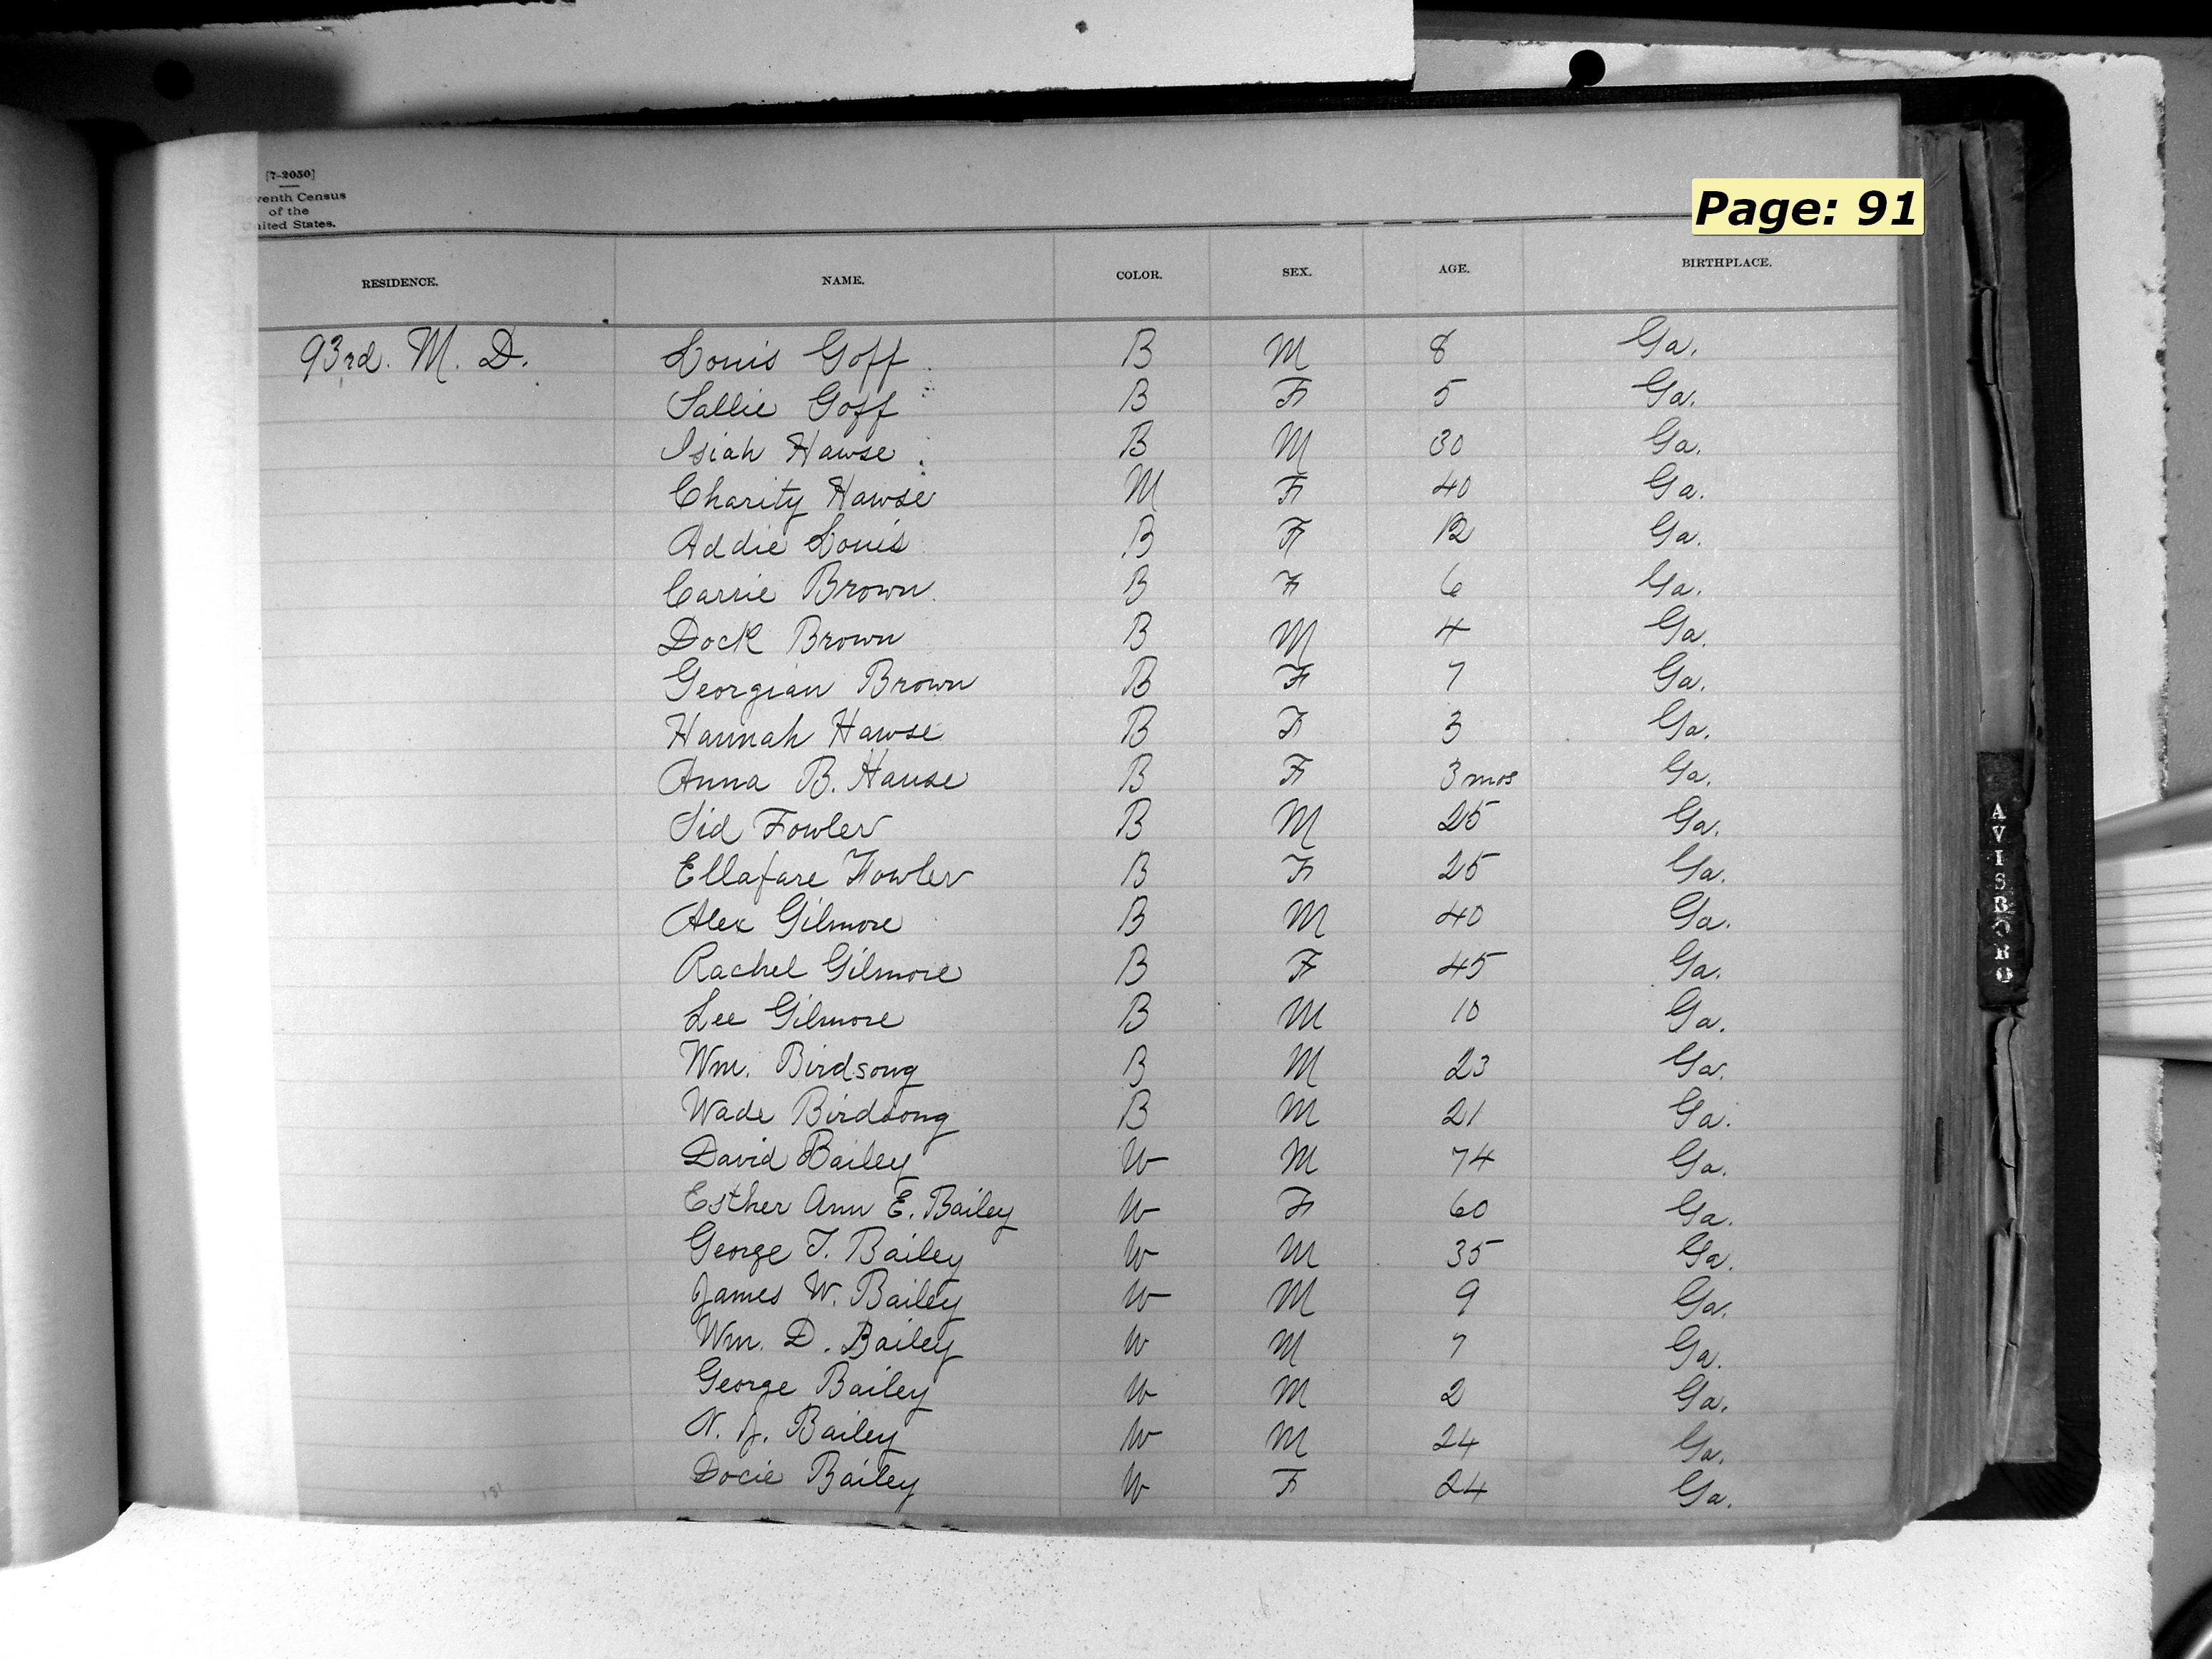 [7-2050]
venth Census
of the
United States.
Page: 91
RESIDENCE. NAME. COLOR. SEX. AGE. BIRTHPLACE.
93rd. M. D. Louis Goff B M 8 Ga.
Sallie Goff B F 5 Ga.
Isiah Hawse B M 30 Ga.
Charity Hawse M F 40 Ga.
Addie Louis B F 12 Ga.
Carrie Brown B F 6 Ga.
Dock Brown B M 4 Ga.
Georgian Brown B F 7 Ga.
Hannah Hawse B F 3 Ga.
Anna B. Hause B F 3 mos Ga.
Sid Fowler B M 25 Ga.
Ellafare Fowler B F 25 Ga.
Alex Gilmore B M 40 Ga.
Rachel Gilmore B F 45 Ga.
Lee Gilmore B M 10 Ga.
Wm. Birdsong B M 23 Ga.
Wade Birdsong B M 21 Ga.
David Bailey W M 74 Ga.
Esther Ann E. Bailey W F 60 Ga.
George T. Bailey W M 35 Ga.
James W. Bailey W M 9 Ga.
Wm. D. Bailey W M 7 Ga.
George Bailey W M 2 Ga.
N. J. Bailey W M 24 Ga.
Docie Bailey W F 24 Ga.
181
AVISBORO